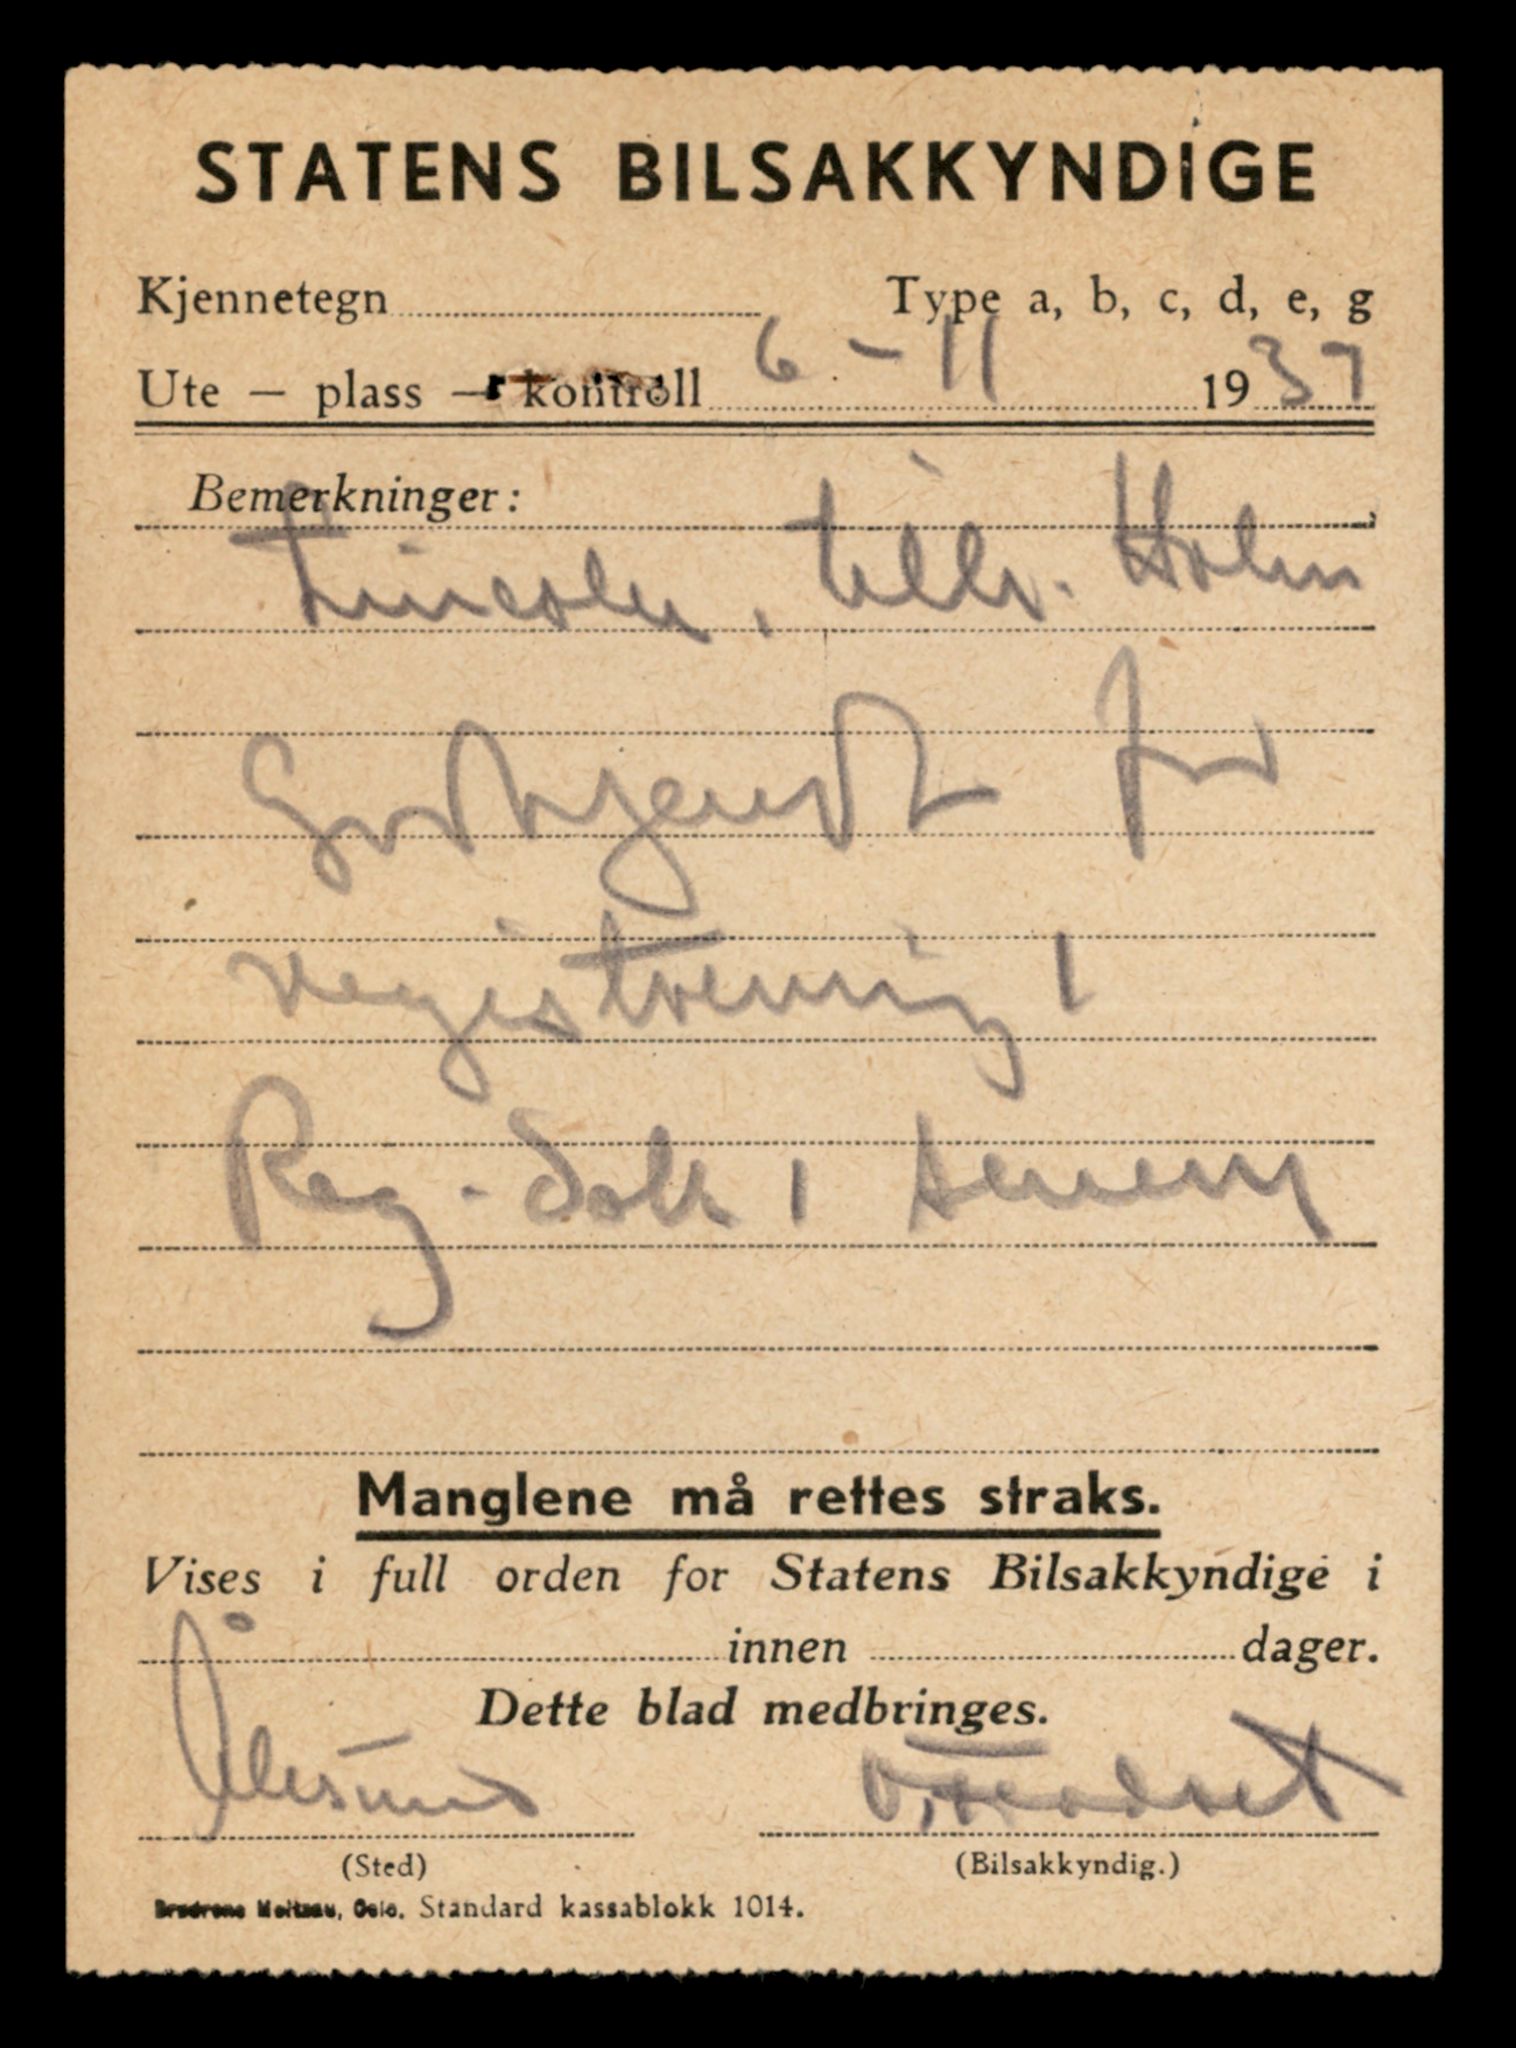 STATENS BILSAKKYNDIGE
Kjennetegn Type a, b, c, d, e, g
Ute — plass — kontroll 6-11 1937
Bemerkninger:
Lincoln, tilh. Holm
Godkjendt for
registrering 1
Reg-dok 1
Manglene må rettes straks.
Vises i full orden for Statens Bilsakkyndige i
innen dager.
Dette blad medbringes.
Ålesund
(Sted) (Bilsakkyndig.)
Brødrene Meltzau, Oslo. Standard kassablokk 1014.